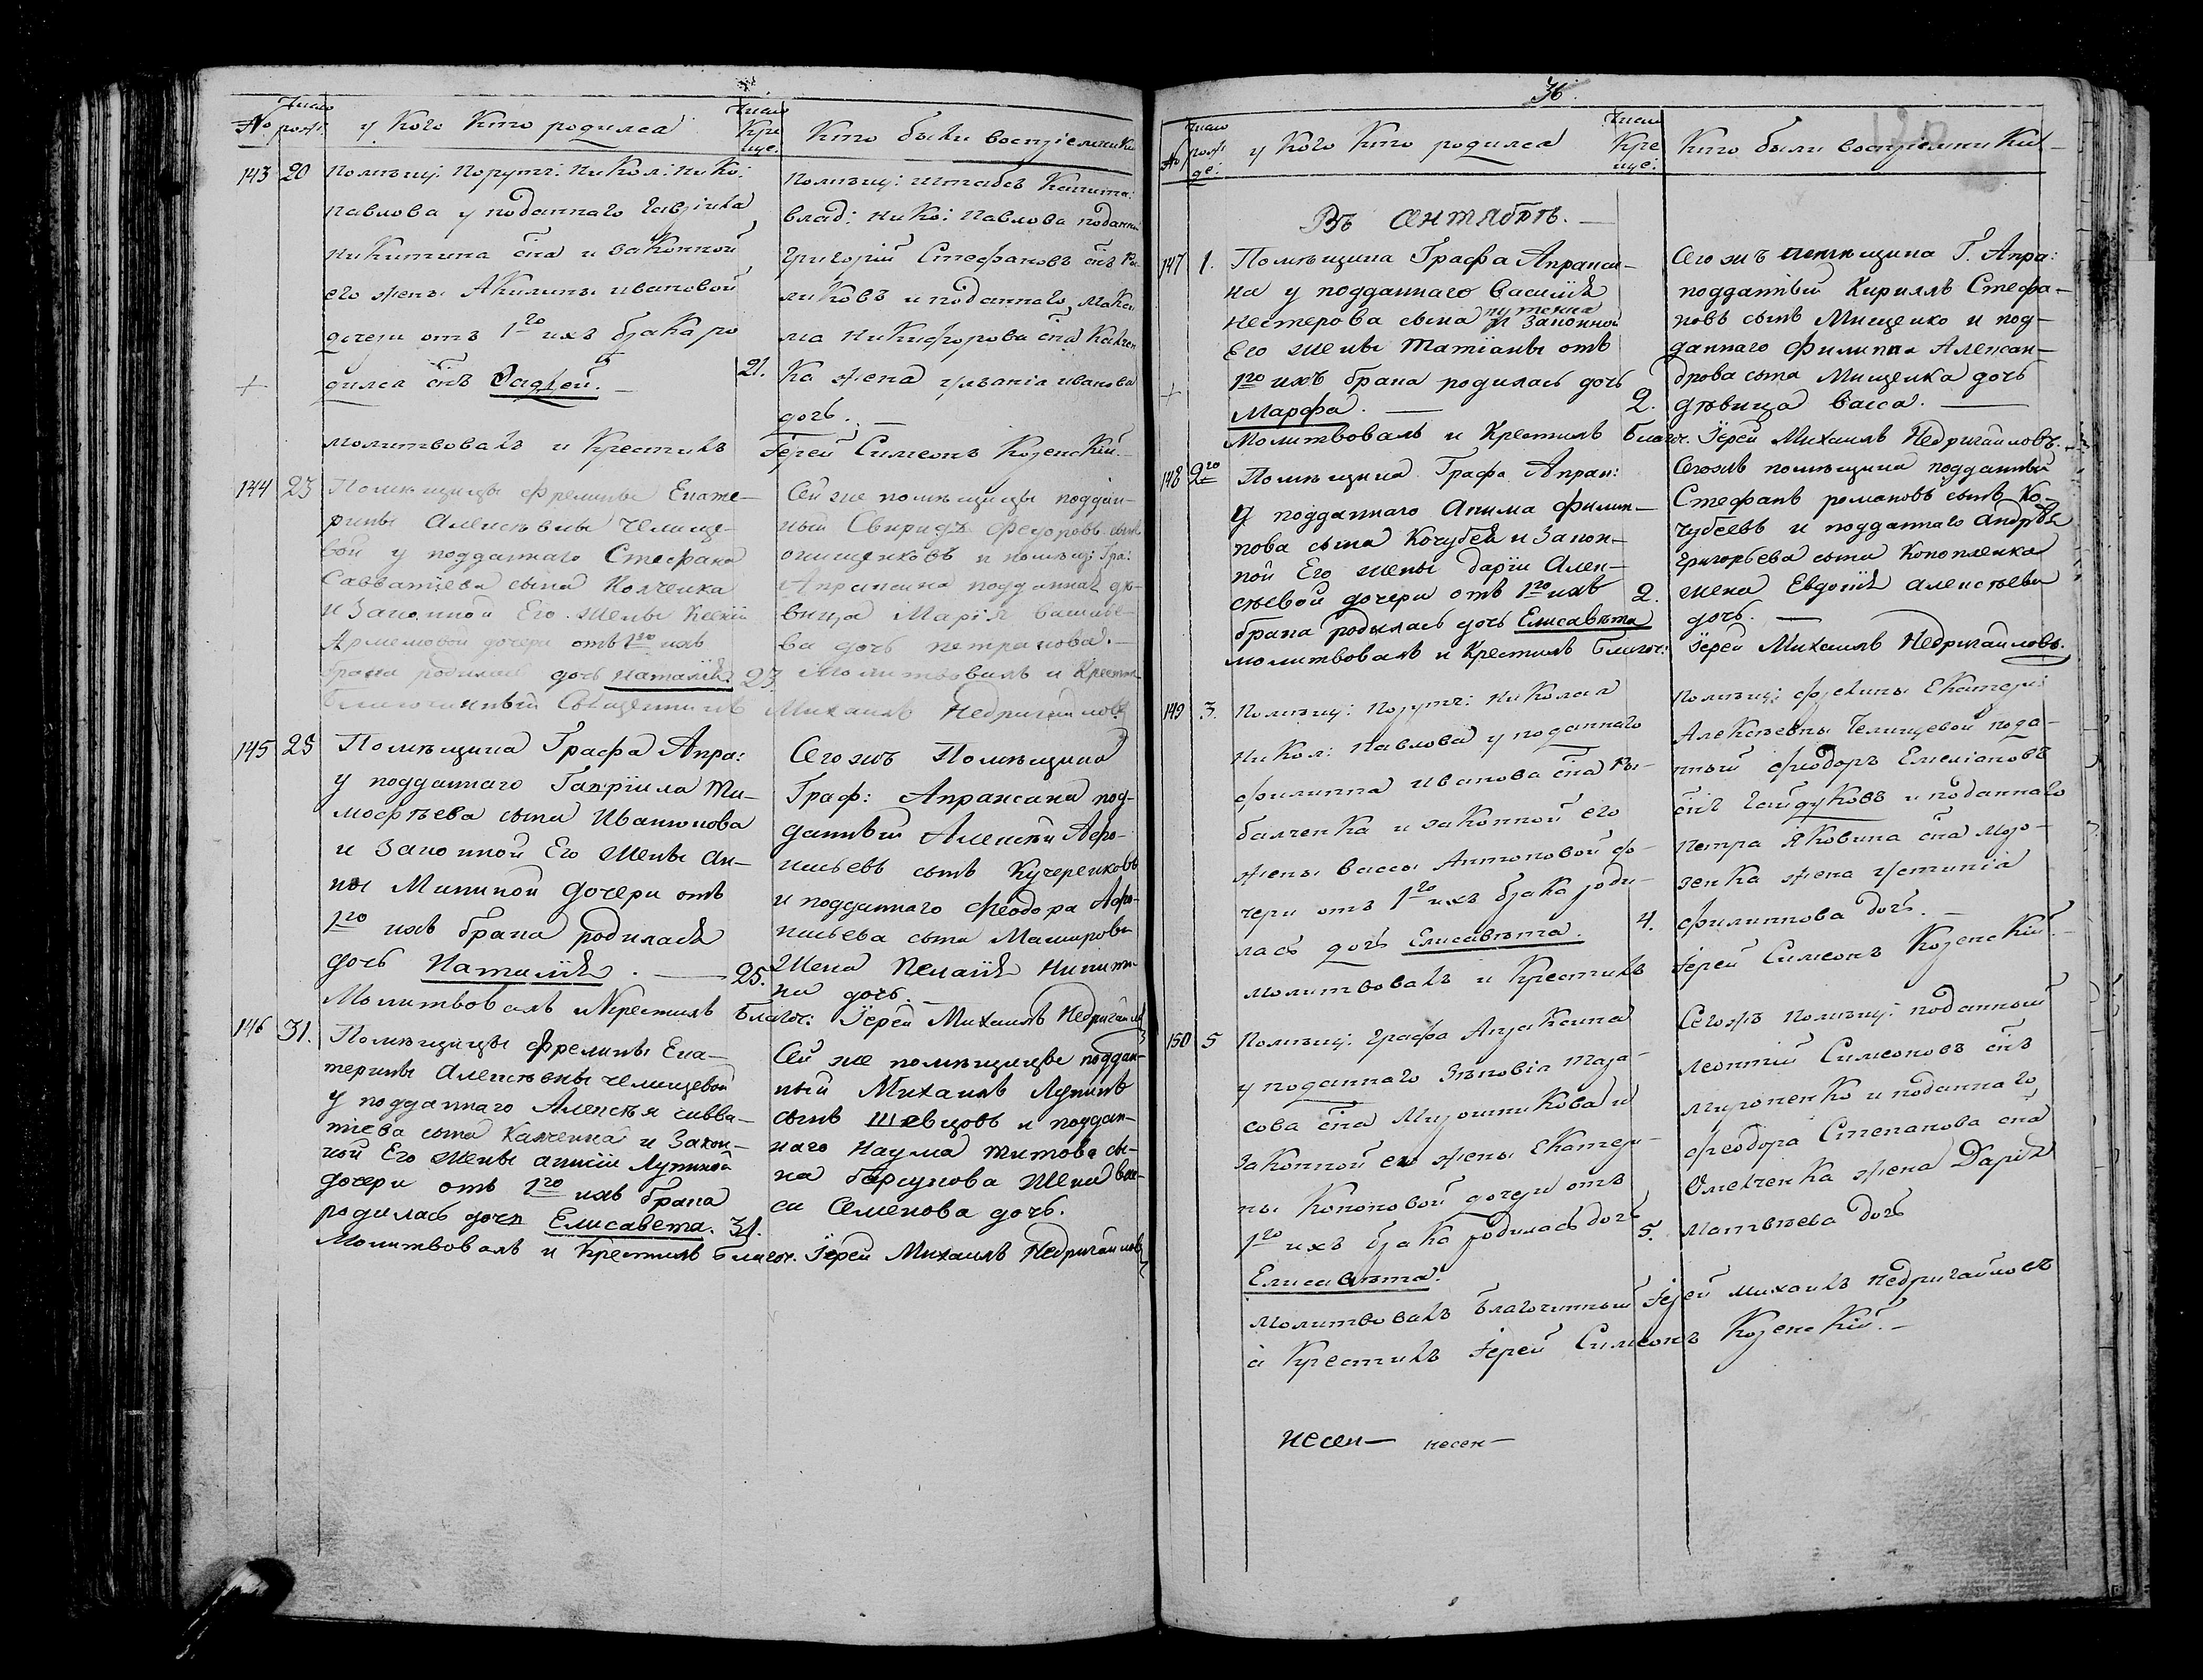 №
Число рожд.
у кого кто родился
Число Кре ще.
Кто были восприемники
143 20 Помѣщ: Поруч: Никол: Нико:
Павлова у поданнаго Гавріила
Никитина сна и законной
его жены Акилины Ивановой
дочери отъ 1го ихъ брака ро
дился снъ Фадѣей. 21.
Помѣщ: Штабсъ Капита:
влад: Нико: Павлова поданный
Григорій Стефановъ снъ
ликовъ и поданнаго
ма Никифорова сна
ка жена Ивановa
дочь.
молитвовалъ и Крестилъ Іерей Симеонъ Козенскій.
144 23 Помѣщицы Фрелины Екате-
рины Алексѣевны Челище-
вой у подданнаго Стефана
Савватіева сына Колченка
и Законной Его жены Ксеніи
Артемовой дочери отъ 1го ихъ
брака родилась дочь Наталія. 23.
Сей же помѣщицы поддан-
ный Свиридъ Федоровъ сынъ
Онищенковъ и помѣщ: Гра:
Апраксина подданная дѣ-
вица Марія
ва дочь Петракова.
Молитвовалъ и Крестил
Благочинный Священникъ Михаилъ Недригайловъ
145 25 Помѣщика Графа Апра:
у подданнаго Гавріила Ти-
мофѣева сына Иванюкова
и Законной Его Жены Ан-
ны Мининой дочери отъ
1го ихъ брака родилась
дочь Наталія. 25.
Сего жъ Помѣщика
Граф: Апраксина под-
данный Алексѣй Афо-
насьевъ сынъ Кучеренковъ
и подданнаго Феодора Афо-
насьева сына
Жена Пелагія Никити-
на дочь.
Молитвовалъ и Крестилъ Благоч: Іерей Михаилъ Недригайлов
146 31. Помѣщицы Фрелины Ека-
терины Алексѣевны Челищевой
у подданнаго Алексѣя Савва-
тіева сына Калченка и Закон-
ной Его Жены Аннiи Лукиной
дочери отъ 1го ихъ брака
родилась дочь Елисавета. 31.
Сей же помѣщицы поддан-
ный Михаилъ Лукинъ
сынъ Шевцовъ и поддан-
наго Наума Титова сы-
на Барсукова Жена
са Семенова дочь.
Молитвовалъ и Крестилъ Благоч. Іерей Михаилъ Недригайлов
36.
№
Число рожде:
у кого кто родился
Число Кре ще:
Кто были восприемники
Въ Сентябрѣ.
147 1. Помѣщика Графа Апракси-
на у подданнаго Василія
Нестерова сына и Законной
Его жены Татіаны отъ
1го ихъ брака родилась дочь
Марфа. 2.
Сего жъ помѣщика Г. Апра:
подданный Кириллъ Стефа-
новъ сынъ Мищенко и под-
даннаго Филиппа Алексан-
дрова сына Мищенка дочь
дѣвица Васса.
Молитвовалъ и Крестилъ Благоч. Іерей Михаилъ Недригайловъ.
148 2го Помѣщика Графа Апрак:
у подданнаго Акима Филип-
пова сына Кочубея и Закон-
ной Его жены Даріи Алек-
сѣевой дочери отъ 1го ихъ 2.
брака родилась дочь Елисавѣта
Сегожъ помѣщика подданный
Стефанъ Романовъ сынъ Ко-
чубеевъ и подданнаго Андрѣя
Григорьева сына Коноплянка
жена Евдокія Алексѣева
дочь.
молитвовалъ и Крестилъ Благоч: Іерей Михаилъ Недригайловъ.
149 3. Помѣщ: Поруч: Николая
Никол: Павлова у поданнаго
Филиппа Иванова сна Ры-
балченка и законной его
жены Вассы Антоновой до-
чери отъ 1го ихъ брака роди-
лась дочь Елисавѣта. 4.
Помѣщ: Фрелины Екатери:
Алексѣевны Челищевой пода-
нный Феодоръ Емеліановъ
снъ Гайдуковъ и поданнаго
Петра Яковина сна Моро-
зенка жена Устинія
Филиппова дочь.
молитвовалъ и Крестилъ Іерей Симеонъ Козенскій.
150 5 Помѣщ: Графа Апраксина
у поданнаго Зѣновіа Тара-
сова сна Мирошникова и
законной его жены Екатери-
ны Кононовой дочери отъ
1го ихъ брака родилась дочь 5.
Елисавѣта.
Сегожъ помѣщ: поданный
Леонтій Симеоновъ снъ
Мироненко и поданнаго
Феодора Степанова сна
Омелченка жена Дарія
Матвѣева дочь
молитвовалъ Благочинный Іерей Михаилъ Недригайловъ
а Крестилъ Іерей Симеонъ Козенскій.